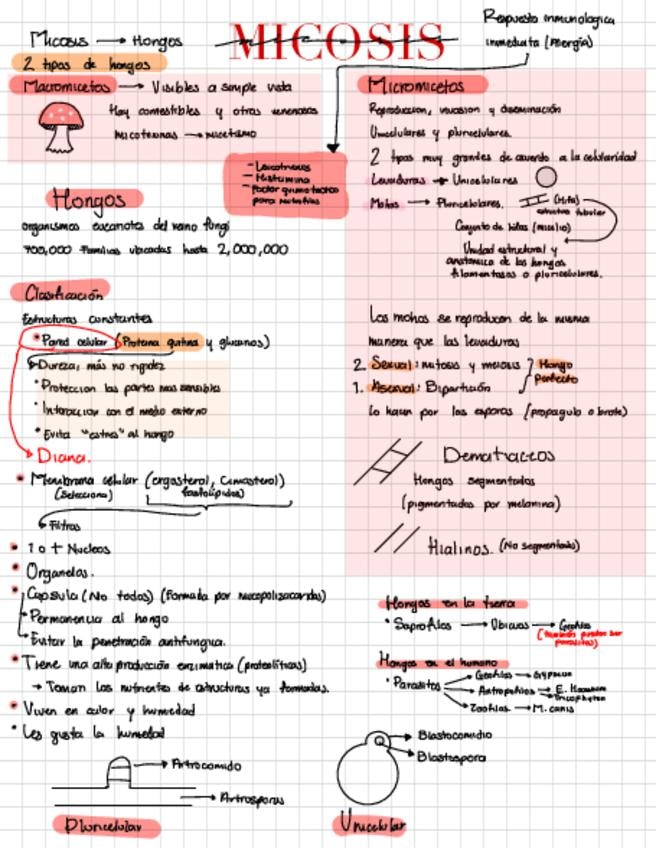 MICOSIS
Respuesta inmunologica
inmediata (Alergia)
Micosis → Hongos
2 tipos de hongos
Macromicetos → Visibles a simple vista
Hay comestibles y otras venenosas
Micotoxinas → micetismo
- Leucotrienos
- Histamina
- Factor quimiotactico
para neutrofilos
Hongos
organismos eucariotas del reino fungi
700,000 Familias ubicadas hasta 2,000,000
Clasificación
Estructuras constantes
• Pared celular (Proteina quitina y glucanos)
Dureza, más no rigidez
• Proteccion las partes mas sensibles
• Interaccion con el medio externo
• Evita "estres" al hongo
Diana.
• Membrana celular (ergosterol, Cimosterol)
(Selecciona) fosfolípidos)
Filtros
• 1 o + Nucleos
• Organelos.
• Capsula (No todos) (Formada por mucopolisacaridos)
Permanencia al hongo
Evitar la penetración antifungica.
• Tiene una alta producción enzimatica (proteolíticas)
→ Toman los nutrientes de estructuras ya formadas.
• Viven en calor y humedad
• Les gusta la humedad
→ Artroconidio
→ Artrosporas
Pluricelular
Micromicetos
Reproduccion, invasion y diseminación
Unicelulares y pluricelulares.
2 tipos muy grandes de acuerdo a la celularidad
Levaduras → Unicelulares
Mohos → Pluricelulares. (Hifa)
estructura tubular
Conjunto de hifas (micelio)
Unidad estructural y
anatomica de los hongos
filamentosos o pluricelulares.
Los mohos se reproducen de la misma
manera que las levaduras
2. Sexual: mitosis y meiosis Hongo
1. Asexual: Bipartición perfecto
Lo hacen por las esporas (propagulo o brote)
Dematiaceos
Hongos segmentados
(pigmentados por melanina)
Hialinos. (No segmentado)
Hongos en la tierra
• Saprofilos → Ubicuos → Geofilos
(tambien pueden ser
parasitos)
Hongos en el humano
• Parasitos → Geofilos → Gypseum
→ Antropofilos → E. floccosum
→ Tricophyton
→ Zoofilos → M. canis
→ Blastoconidio
→ Blastospora
Unicelular